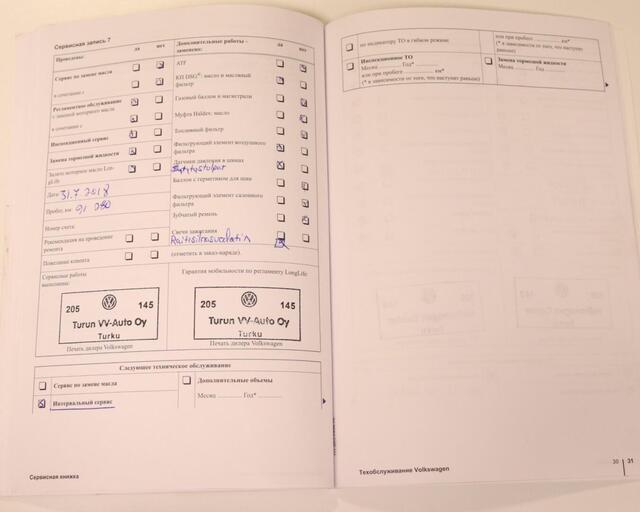 Сервисная запись 7
Проведены: да нет
Сервис по замене масла
в сочетании с
Регламентное обслуживание
с заменой моторного масла
в сочетании с
Инспекционный сервис
Замена тормозной жидкости
Залито моторное масло Lon-
gLife
Дата: 31.7.2018
Пробег, км: 91 280
Номер счета:
Рекомендация на проведение
ремонта
Пожелание клиента
Дополнительные работы –
заменено: да нет
ATF
КП DSG®: масло и масляный
фильтр
Газовый баллон и магистрали
Муфта Haldex: масло
Топливный фильтр
Фильтрующий элемент воздушного
фильтра
Датчики давления в шинах
Sytytystulpat
Баллон с герметиком для шин
Фильтрующий элемент салонного
фильтра
Зубчатый ремень
Свечи зажигания
Raitisilmasuodatin
(отметить в заказ-наряде).
Сервисные работы
выполнены:
Гарантия мобильности по регламенту LongLife:
205 145
Turun VV-Auto Oy
Turku
Печать дилера Volkswagen
205 145
Turun VV-Auto Oy
Turku
Печать дилера Volkswagen
Следующее техническое обслуживание
Сервис по замене масла
Интервальный сервис
Дополнительные объемы
Месяц ........... Год* ...........
Сервисная книжка
по индикатору ТО в гибком режиме
или при пробеге ............... км*
(* в зависимости от того, что наступит
раньше)
Инспекционное ТО
Месяц ........... Год* ...........
или при пробеге ............... км*
(* в зависимости от того, что наступит раньше)
Замена тормозной жидкости
Месяц ........... Год ...........
Техобслуживание Volkswagen
30 31